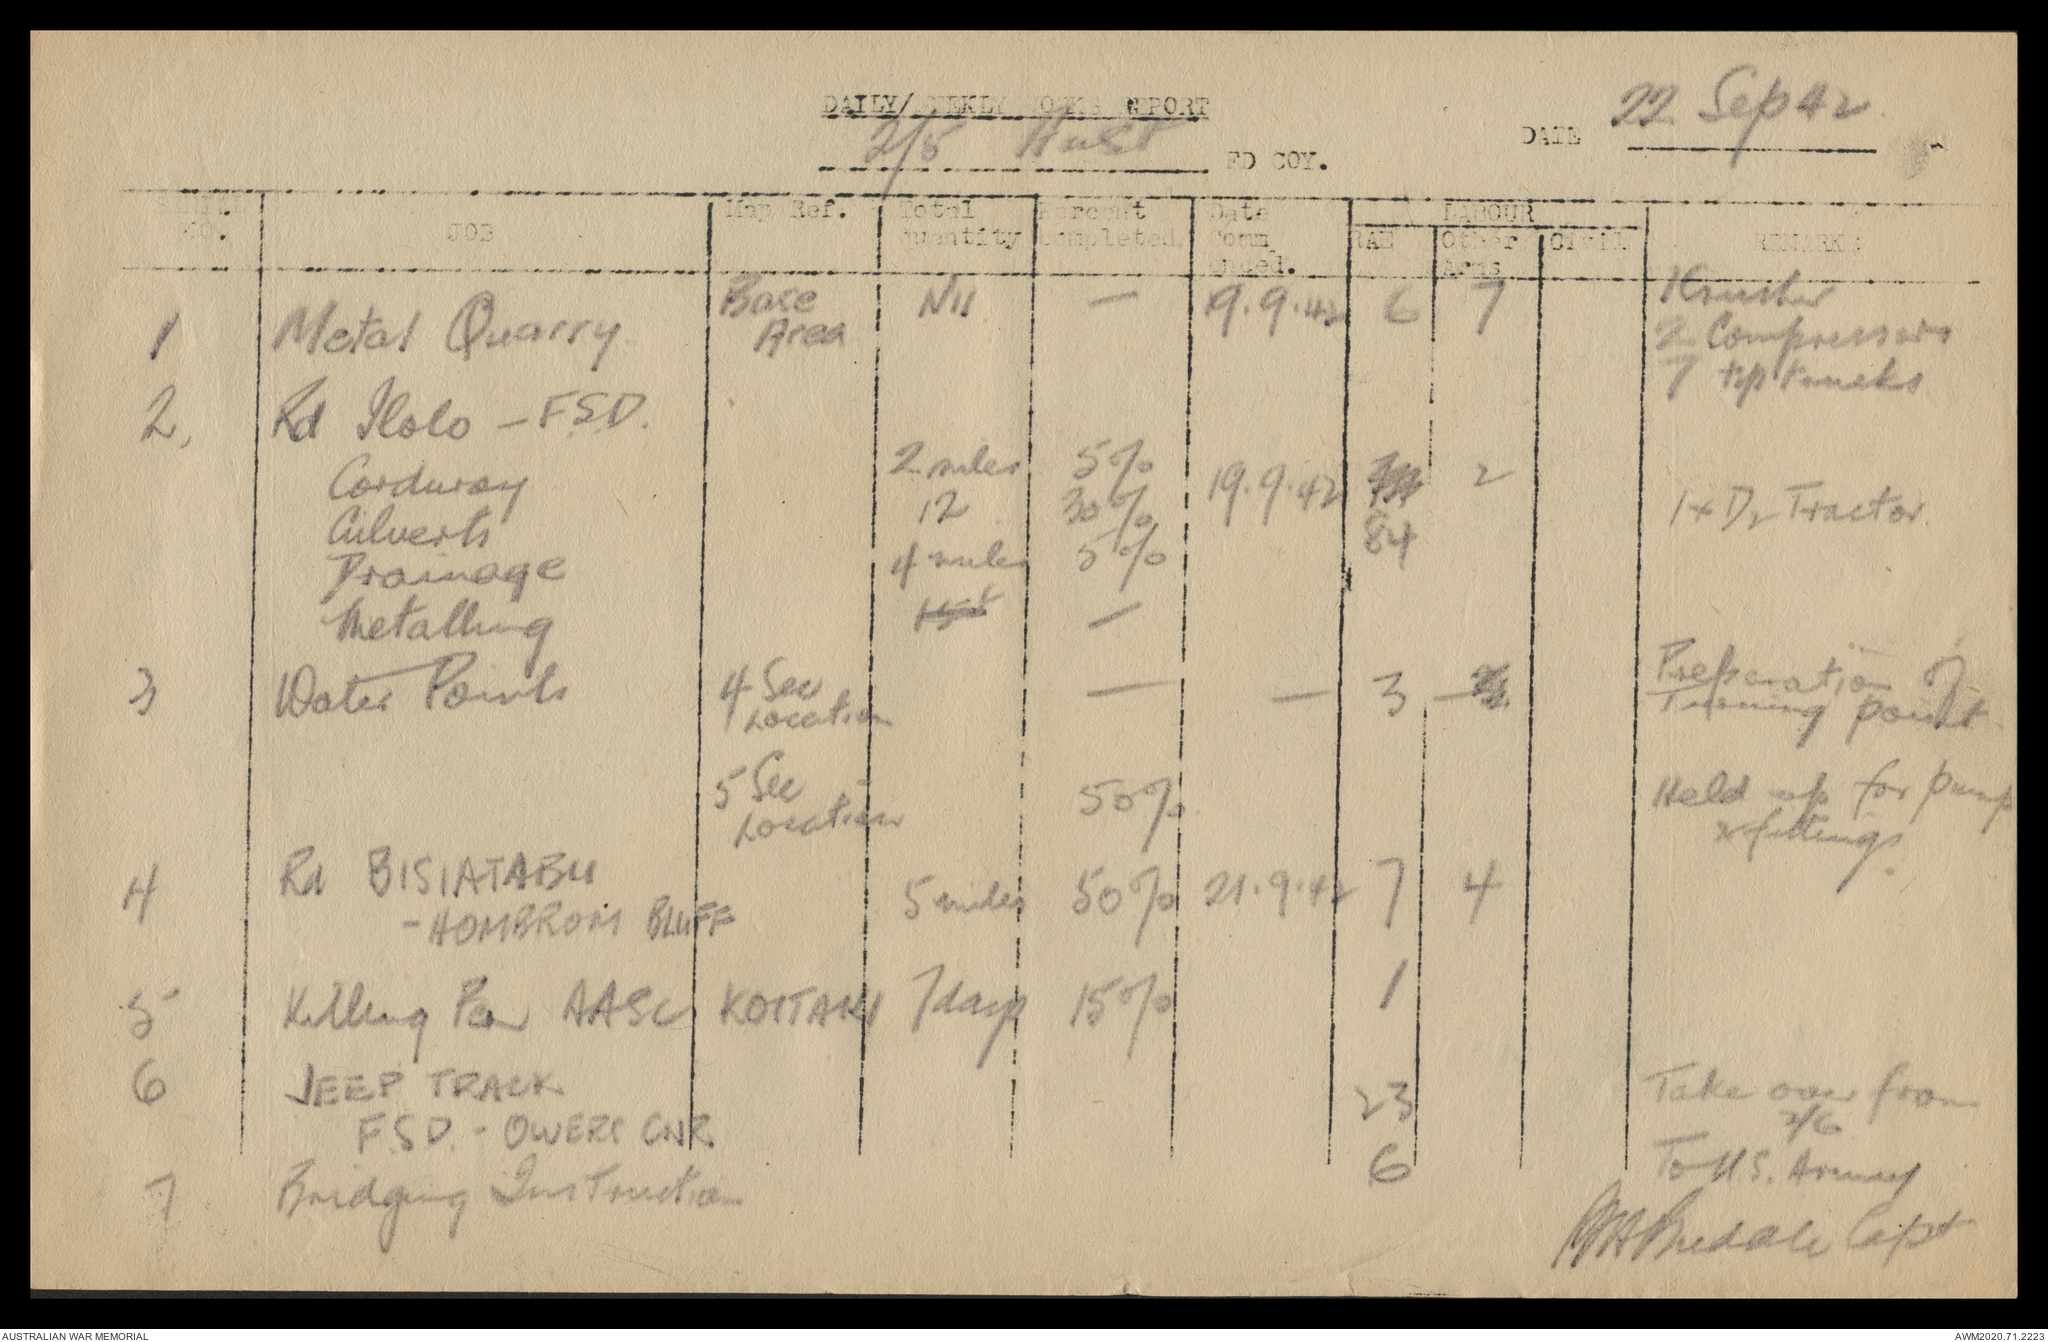 DAILY/WEEKLY WORKS REPORT
2/5 Aust FD COY.
DATE 22 Sep 42
SERIAL NO. JOB Map Ref. Total Quantity Percent Completed. Date Comm enced. LABOUR RAE Other Arms Civil REMARKS
1 Metal Quarry Base Area Nil — 19.9.42 6 7 Krusher
2 Compressors
7 tip trucks
2. Rd Ilolo - F.S.D.
Corduroy 2 miles 5% 19.9.42 84 2 1 x D2 Tractor
Culverts 12 30%
Drainage 4 miles 5%
Metalling —
3 Water Points 4 Sec Location — — 3 — Preparation of
Turning point
5 Sec Location 50% Held up for pump
& fittings
4 Rd BISIATABU
- HOMBROM BLUFF 5 miles 50% 21.9.42 7 4
5 Killing Pen AASC KOITAKI 7 days 15% 1
6 JEEP TRACK
F.S.D. - OWERS CNR. 23 Take over from
2/6
7 Bridging Instruction 6 To U.S. Army
Capt
AUSTRALIAN WAR MEMORIAL
AWM2020.71.2223